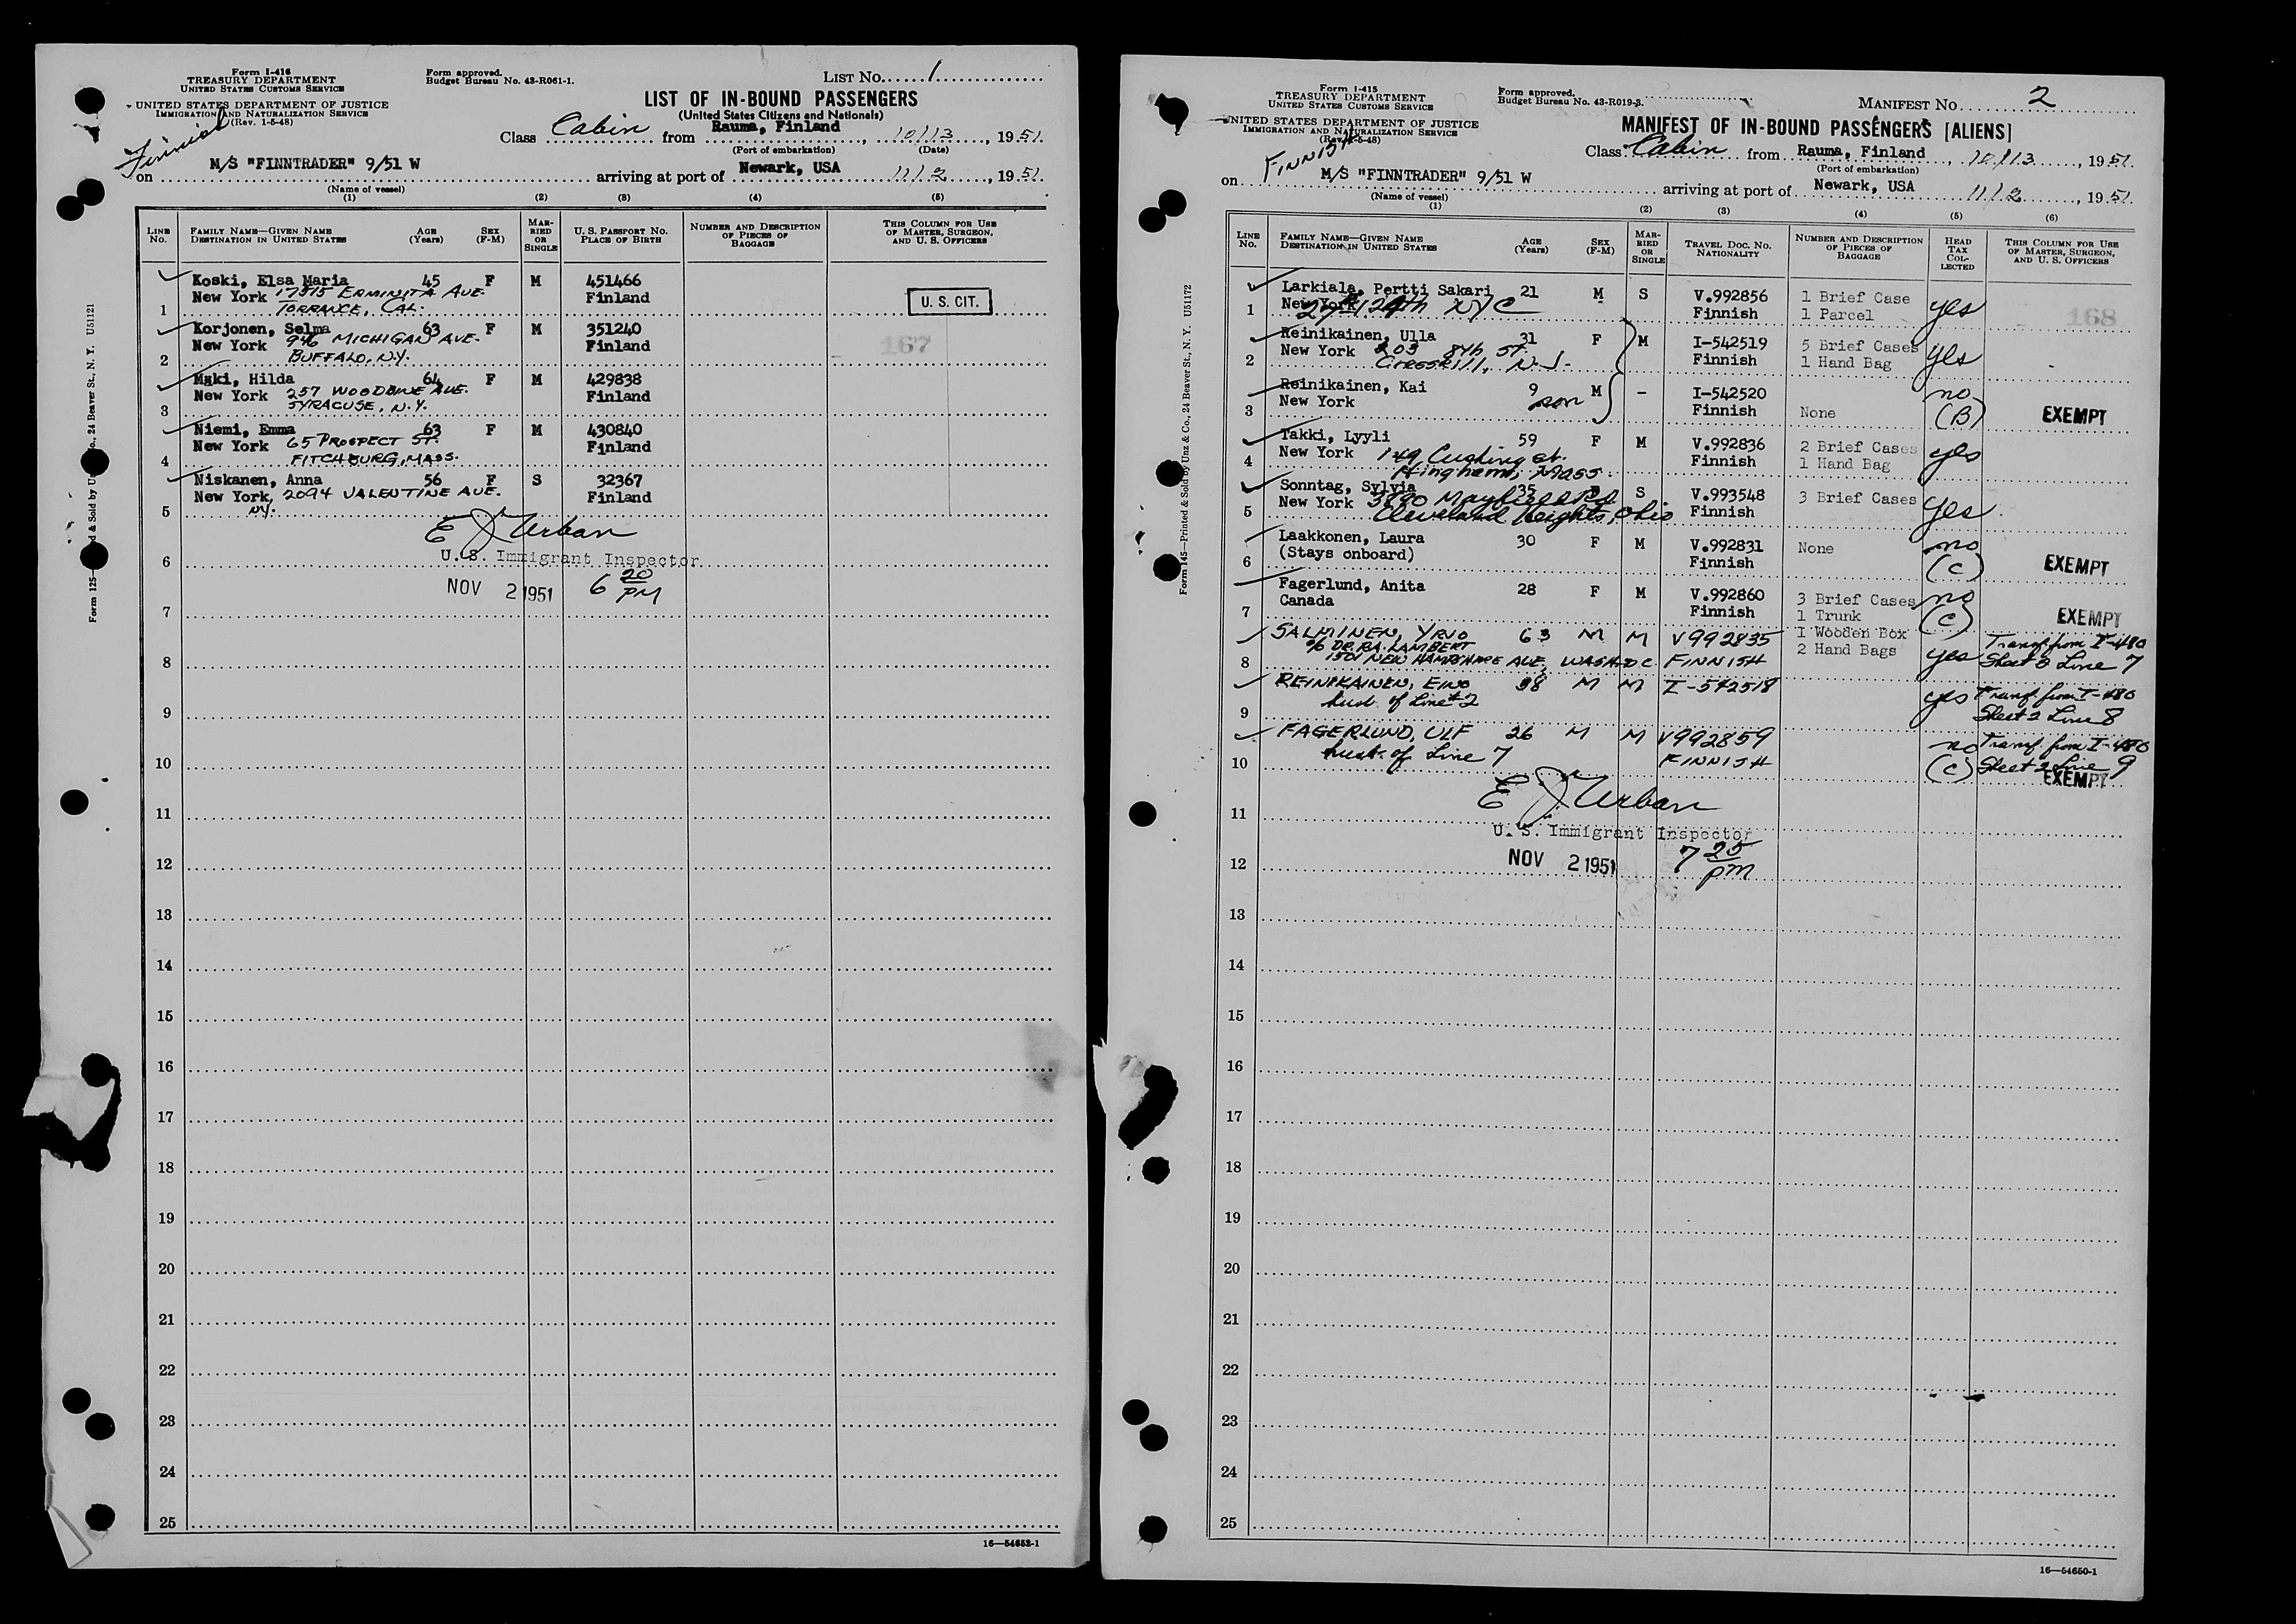 Form I-416
TREASURY DEPARTMENT
UNITED STATES CUSTOMS SERVICE
UNITED STATES DEPARTMENT OF JUSTICE
IMMIGRATION AND NATURALIZATION SERVICE
(Rev. 1-5-48)
Form approved.
Budget Bureau No. 43-R061-1.
LIST No. 1
LIST OF IN-BOUND PASSENGERS
(United States Citizens and Nationals)
Finnish
Class Cabin from Rauma, Finland, 10/13, 1951.
(Port of embarkation) (Date)
on M/S "FINNTRADER" 9/51 W arriving at port of Newark, USA 11/2, 1951.
(Name of vessel)
(1) (2) (3) (4) (5)
LINE No. FAMILY NAME—GIVEN NAME DESTINATION IN UNITED STATES AGE (Years) SEX (F-M) MARRIED OR SINGLE U. S. PASSPORT NO. PLACE OF BIRTH NUMBER AND DESCRIPTION OF PIECES OF BAGGAGE THIS COLUMN FOR USE OF MASTER, SURGEON, AND U. S. OFFICERS
Koski, Elsa Maria 45 F M 451466
New York 17515 ERMINITA AVE. Finland
1 TORRANCE, CAL. U. S. CIT.
Korjonen, Selma 63 F M 351240
New York 946 MICHIGAN AVE. Finland 167
2 BUFFALO, N.Y.
Maki, Hilda 64 F M 429838
New York 257 WOODBINE AVE. Finland
3 SYRACUSE, N.Y.
Niemi, Emma 63 F M 430840
New York 65 PROSPECT ST. Finland
4 FITCHBURG, MASS.
Niskanen, Anna 56 F S 32367
New York, 2094 VALENTINE AVE. Finland
5 NY.
E J Urban
6 U.S. Immigrant Inspector
NOV 2 1951 6 20 PM
7
8
9
10
11
12
13
14
15
16
17
18
19
20
21
22
23
24
25
16—54652-1
Form 125—d & Sold by U o., 24 Beaver St., N. Y. U51121
Form I-415
TREASURY DEPARTMENT
UNITED STATES CUSTOMS SERVICE
UNITED STATES DEPARTMENT OF JUSTICE
IMMIGRATION AND NATURALIZATION SERVICE
(Rev. 1-5-48)
Form approved.
Budget Bureau No. 43-R019-3.
MANIFEST No. 2
MANIFEST OF IN-BOUND PASSENGERS [ALIENS]
FINNISH
Class Cabin from Rauma, Finland, 10/13, 1951.
(Port of embarkation)
on M/S "FINNTRADER" 9/51 W arriving at port of Newark, USA 11/2, 1951.
(Name of vessel)
(1) (2) (3) (4) (5) (6)
LINE No. FAMILY NAME—GIVEN NAME DESTINATION IN UNITED STATES AGE (Years) SEX (F-M) MARRIED OR SINGLE TRAVEL DOC. NO. NATIONALITY NUMBER AND DESCRIPTION OF PIECES OF BAGGAGE HEAD TAX COLLECTED THIS COLUMN FOR USE OF MASTER, SURGEON, AND U. S. OFFICERS
Larkiala, Pertti Sakari 21 M S V.992856 1 Brief Case
1 New York 124th NYC Finnish 1 Parcel yes 168
Reinikainen, Ulla 31 F M I-542519 5 Brief Cases
New York 203 8th ST. Finnish 1 Hand Bag yes
2 CRESSKILL, N.J.
Reinikainen, Kai 9 M - I-542520 no
New York son Finnish None (B) EXEMPT
3
Takki, Lyyli 59 F M V.992836 2 Brief Cases
New York 149 Cushing St. Finnish 1 Hand Bag yes
4 Hingham, Mass.
Sonntag, Sylvia 35 S V.993548 3 Brief Cases
New York 3890 Mayfield Rd Finnish yes
5 Cleveland Heights, Ohio
Laakkonen, Laura 30 F M V.992831 None no
(Stays onboard) Finnish (C) EXEMPT
6
Fagerlund, Anita 28 F M V.992860 3 Brief Cases no
Canada Finnish 1 Trunk (C) EXEMPT
7 1 Wooden Box
SALMINEN, YRJO 63 M M V992835 2 Hand Bags
c/o DR. R.A. LAMBERT
8 1501 NEW HAMPSHIRE AVE, WASH D.C. FINNISH yes Transf. from I-480 Sheet 2 Line 7
REINIKAINEN, EINO 38 M M I-542518 yes Transf. from I-480
husb. of Line #2 Sheet 2 Line 8
9
FAGERLUND, ULF 26 M M V992859 no Transf. from I-480
10 husb. of Line 7 FINNISH (C) Sheet 2 Line 9
EXEMPT
E J Urban
11 U. S. Immigrant Inspector
12 NOV 2 1951 7 25 pm
13
14
15
16
17
18
19
20
21
22
23
24
25
16—54650-1
Form 145—Printed & Sold by Unz & Co., 24 Beaver St., N. Y. U51172